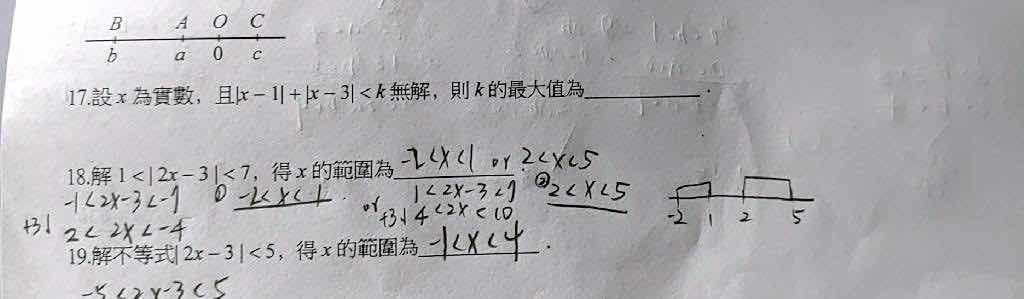 B A O C
b a 0 c
17.設 x 為實數，且|x − 1| + |x − 3| < k 無解，則 k 的最大值為________.
18.解 1 < | 2x − 3 | < 7，得 x 的範圍為 -2<x<1 or 2<x<5.
-1<2x-3<-7 ① -2<x<1 or 1<2x-3<7 ② 2<x<5
+3↓ 2< 2x <-4 +3↓ 4<2x<10
-2 1 2 5
19.解不等式| 2x − 3 | < 5，得 x 的範圍為 -1<x<4.
-5<2x-3<5